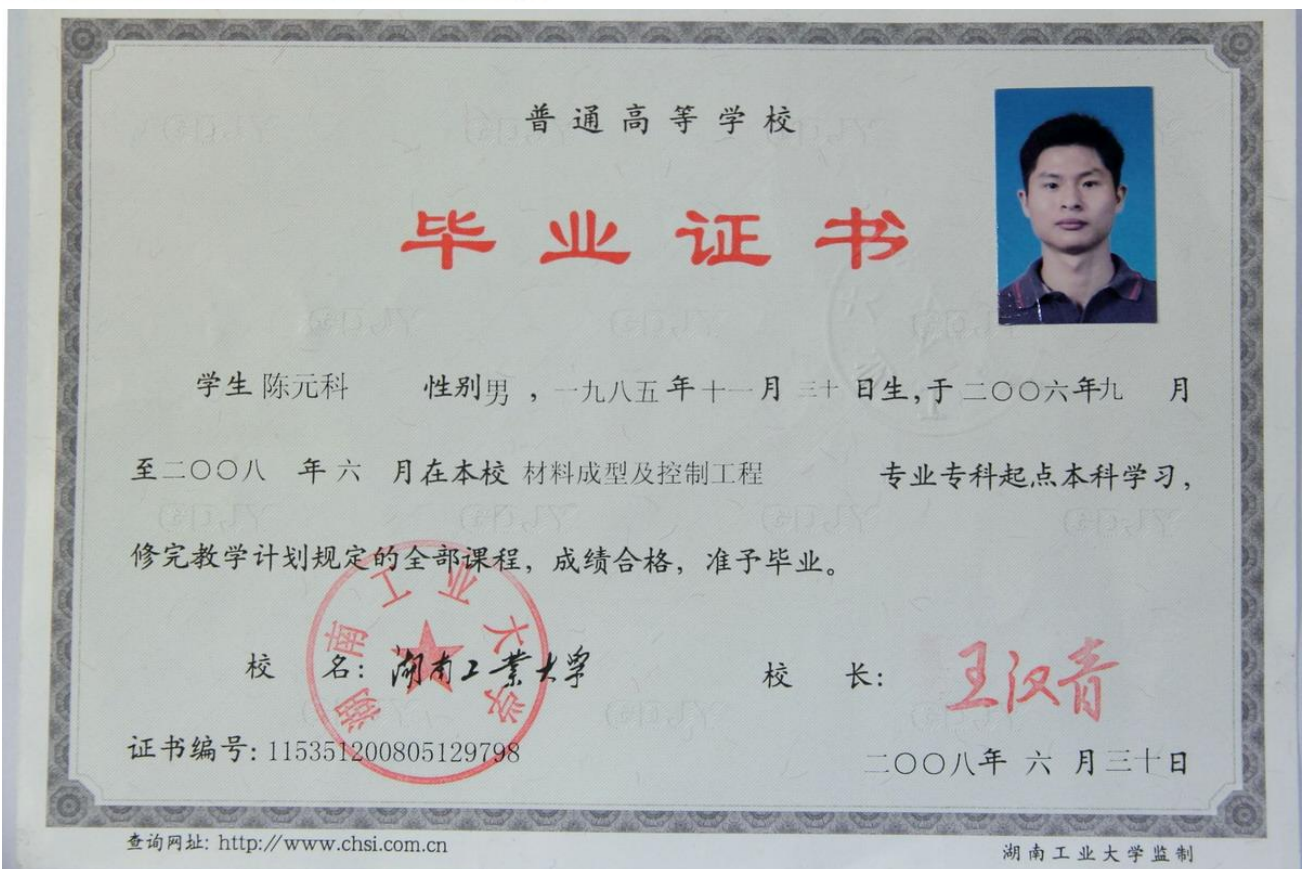 普通高等学校
毕业证书
学生 陈元科 性别男，一九八五年十一月 三十 日生，于二〇〇六年九 月
至二〇〇八 年 六 月在本校 材料成型及控制工程 专业专科起点本科学习，
修完教学计划规定的全部课程，成绩合格，准予毕业。
湖南工业大学
校 名：湖南工業大學 校 长：王汉青
证书编号：115351200805129798 二〇〇八年 六 月三十日
查询网址：http://www.chsi.com.cn 湖南工业大学监制